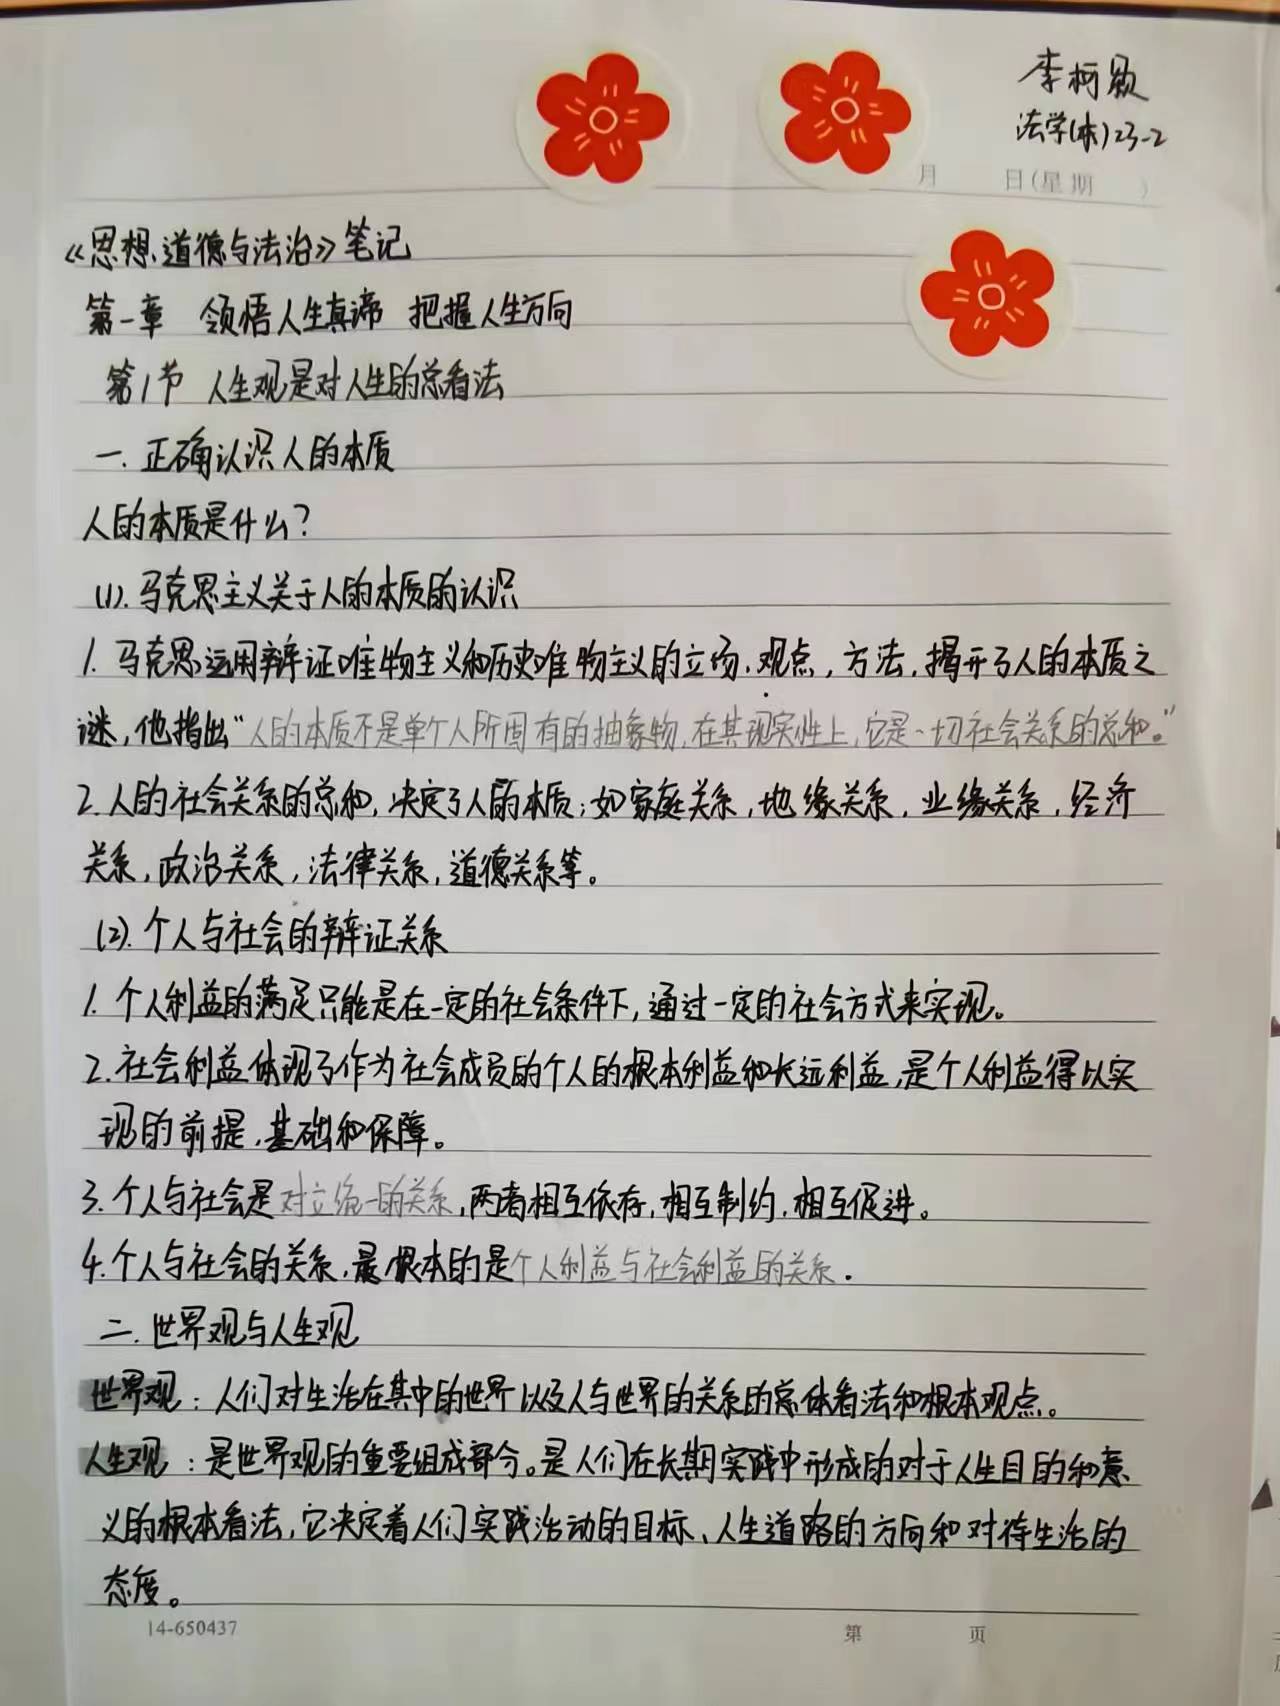 李柯颖
法学(本)23-2
月 日(星期 )
《思想道德与法治》笔记
第一章 领悟人生真谛 把握人生方向
第1节 人生观是对人生的总看法
一.正确认识人的本质
人的本质是什么?
(1).马克思主义关于人的本质的认识
1.马克思运用辩证唯物主义和历史唯物主义的立场、观点，方法，揭开了人的本质之
谜，他指出“人的本质不是单个人所固有的抽象物，在其现实性上，它是一切社会关系的总和。”
2.人的社会关系的总和，决定了人的本质；如家庭关系，地缘关系，业缘关系，经济
关系，政治关系，法律关系，道德关系等。
(2).个人与社会的辩证关系
1.个人利益的满足只能是在一定的社会条件下，通过一定的社会方式来实现。
2.社会利益体现了作为社会成员的个人的根本利益和长远利益，是个人利益得以实
现的前提，基础和保障。
3.个人与社会是对立统一的关系，两者相互依存，相互制约，相互促进。
4.个人与社会的关系，最根本的是个人利益与社会利益的关系.
二.世界观与人生观
世界观：人们对生活在其中的世界以及人与世界的关系的总体看法和根本观点。
人生观：是世界观的重要组成部分。是人们在长期实践中形成的对于人生目的和意
义的根本看法，它决定着人们实践活动的目标、人生道路的方向和对待生活的
态度。
14-650437
第 页